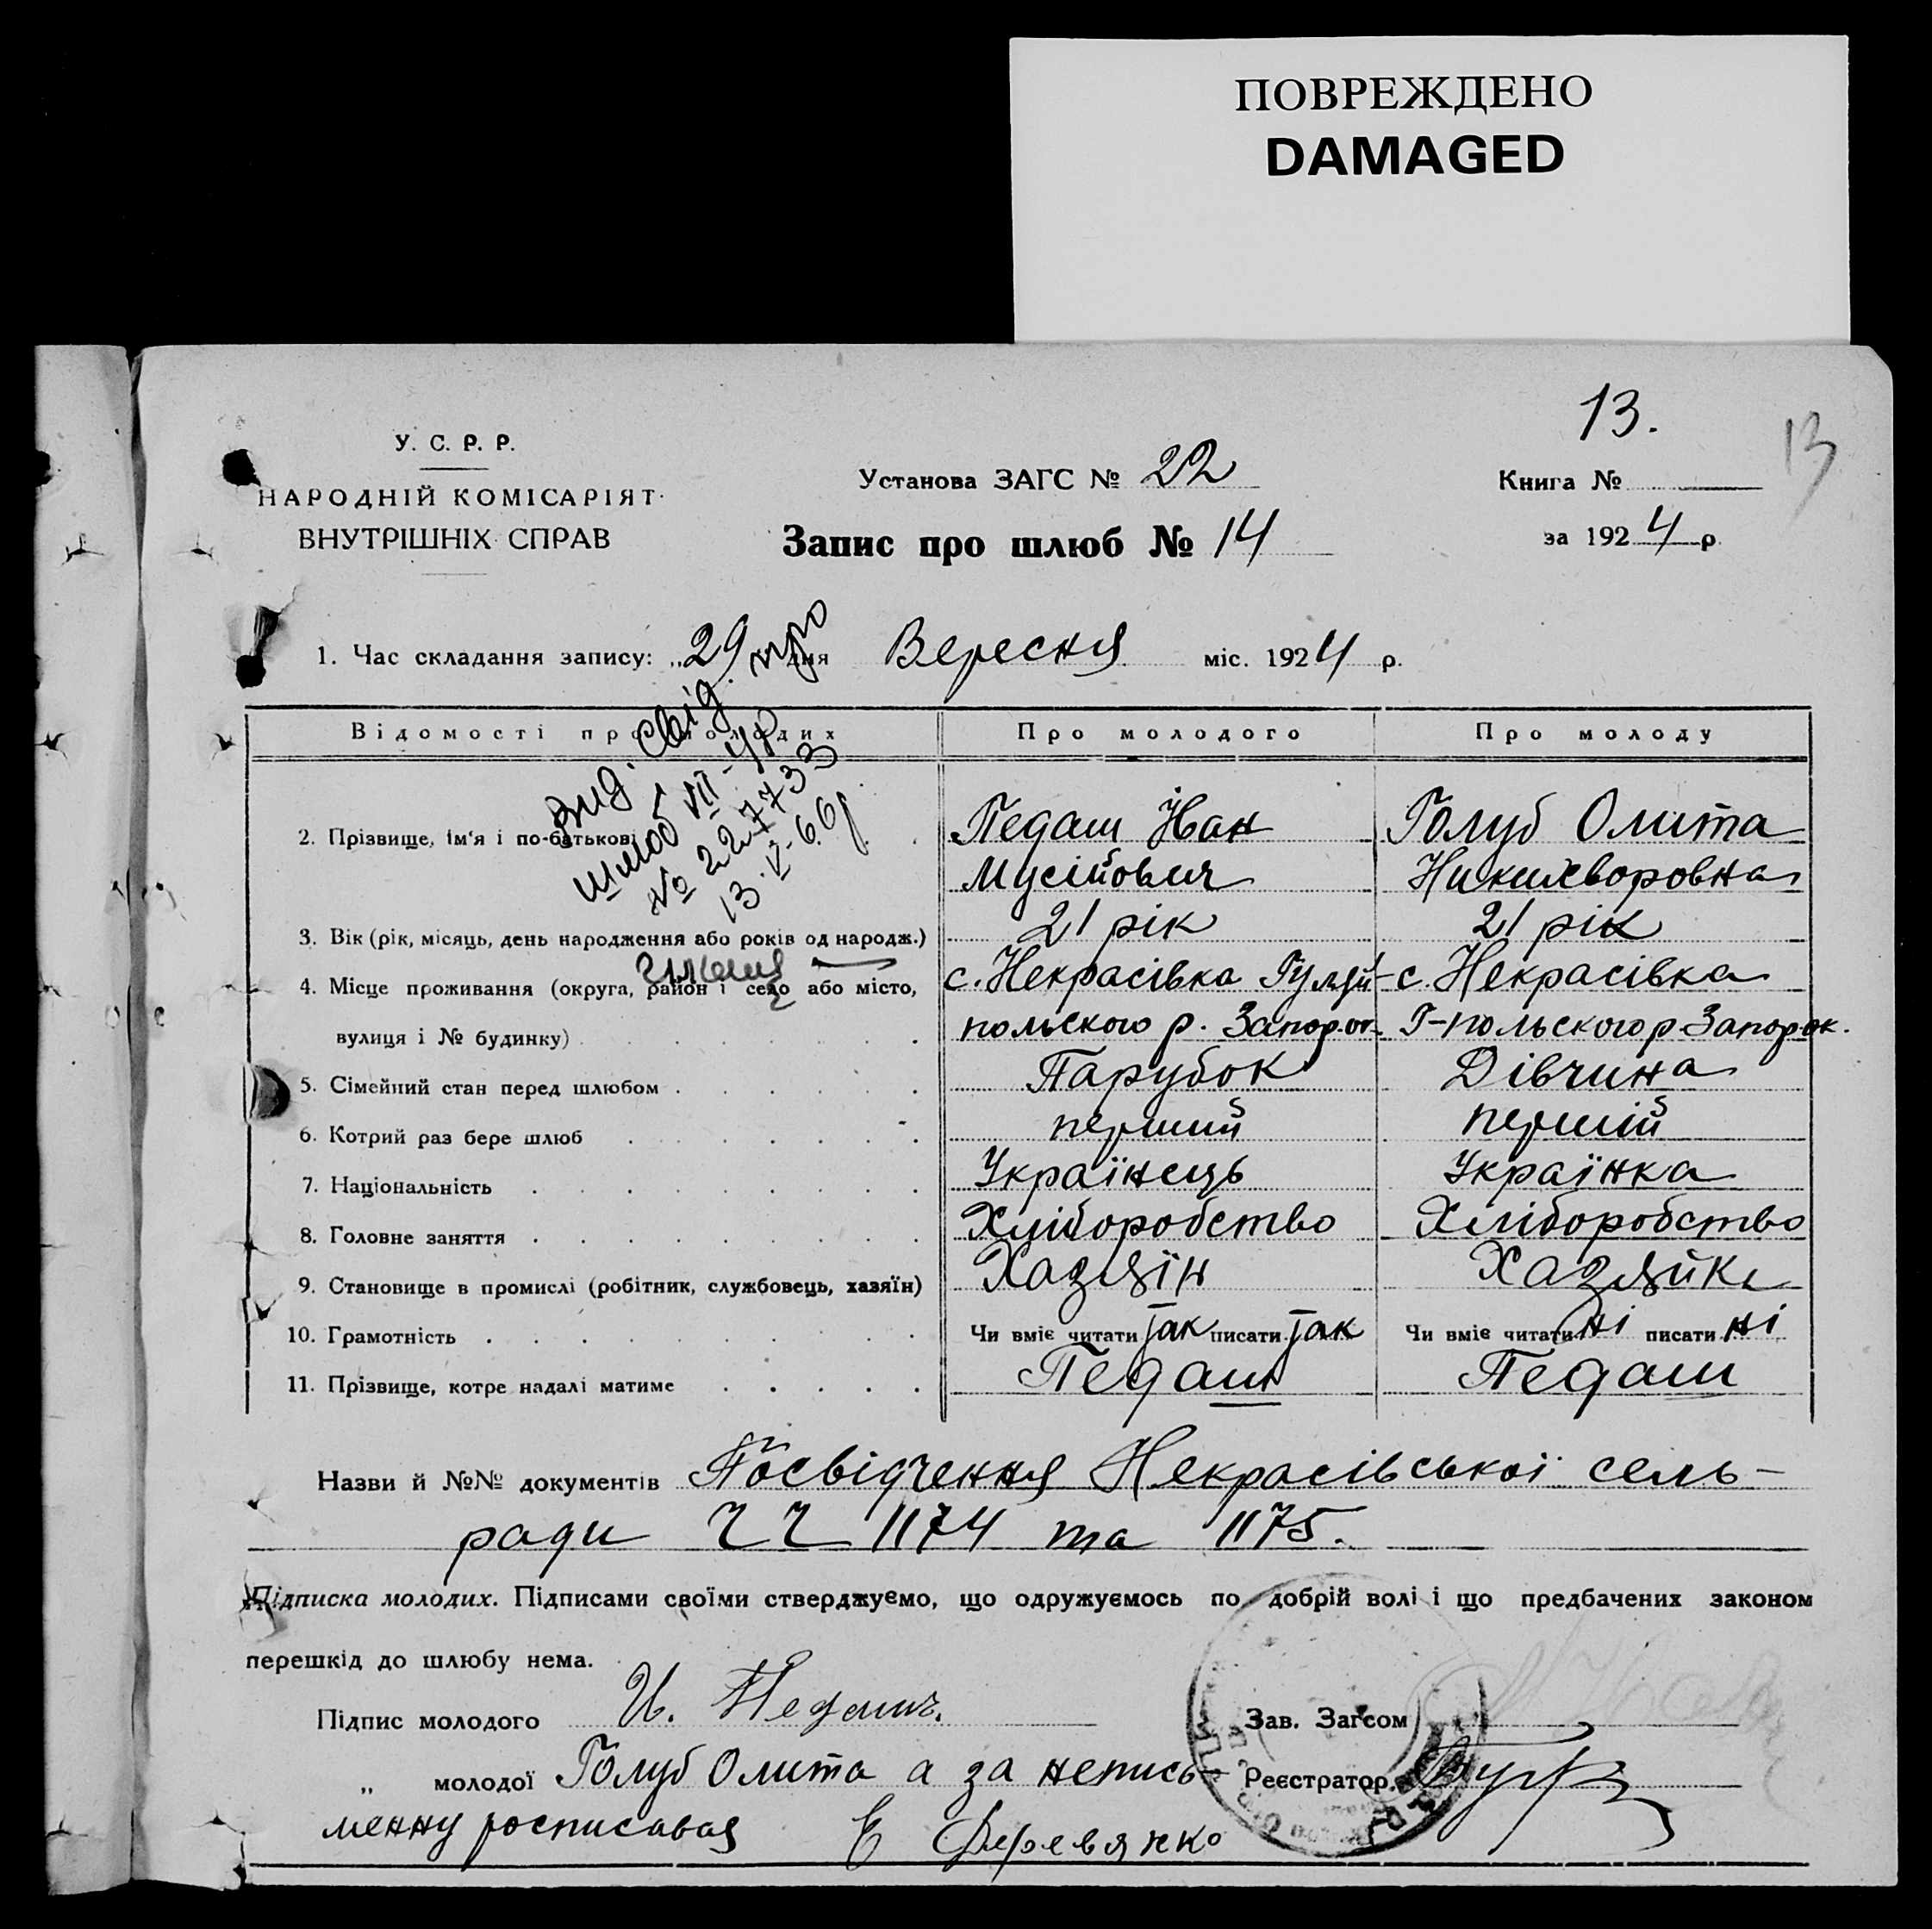 ПОВРЕЖДЕНО
DAMAGED
13.
13
У. С. Р. Р.
НАРОДНІЙ КОМІСАРІЯТ
ВНУТРІШНІХ СПРАВ
Установа ЗАГС № 22
Книга №
Запис про шлюб № 14
за 1924 р.
1. Час складання запису: „29 дня Вересня міс. 1924 р.
вид. свід. про
шлюб VII-УР
№ 227733
13.V-66р.
Відомості про молодих Про молодого Про молоду
2. Прізвище, ім'я і по-батькові Педаш Іван Голуб Олита
Мусійович Никихворовна
3. Вік (рік, місяць, день народження або років од народж.) 21 рік 21 рік
4. Місце проживання (округа, район і село або місто, с. Некрасівка Гуляй- с. Некрасівка
вулиця і № будинку) польского р. Запор. ок. Г-польского р. Запор. ок.
5. Сімейний стан перед шлюбом Парубок Дівчина
6. Котрий раз бере шлюб перший першій
7. Національність Українець Українка
8. Головне заняття Хліборобство Хліборобство
9. Становище в промислі (робітник, службовець, хазяїн) Хазяїн Хазяйка
10. Грамотність Чи вміє читати так писати так Чи вміє читати ні писати ні
11. Прізвище, котре надалі матиме Педаш Педаш
Назви й №№ документів Посвідчення Некрасівської сель-
ради Ч Ч 1174 та 1175.
Підписка молодих. Підписами своїми стверджуємо, що одружуємось по добрій волі і що предбачених законом
перешкід до шлюбу нема.
Підпис молодого И. Педаш. Зав. Загсом
„ молодої Голуб Олита а за неписьменну Реєстратор
росписавя Е Деревянко